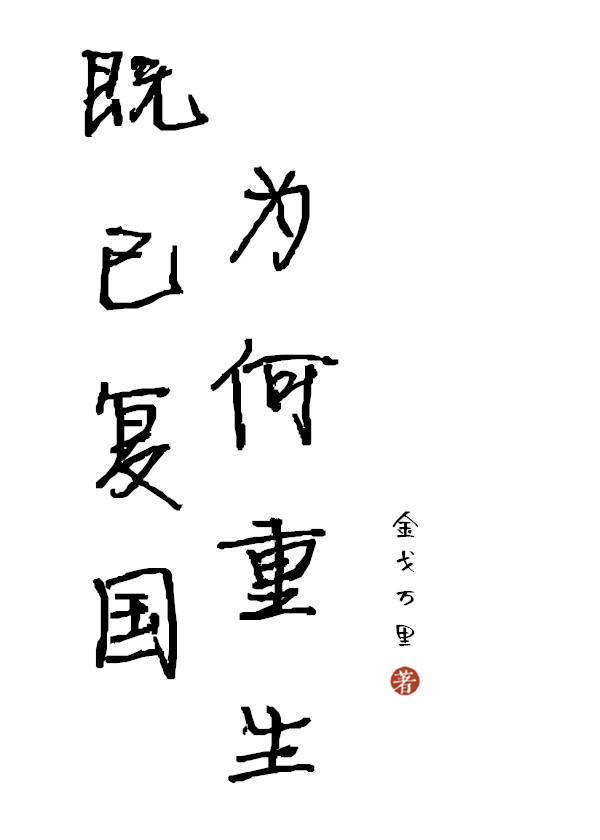 既已复国
为何重生
金戈万里
著